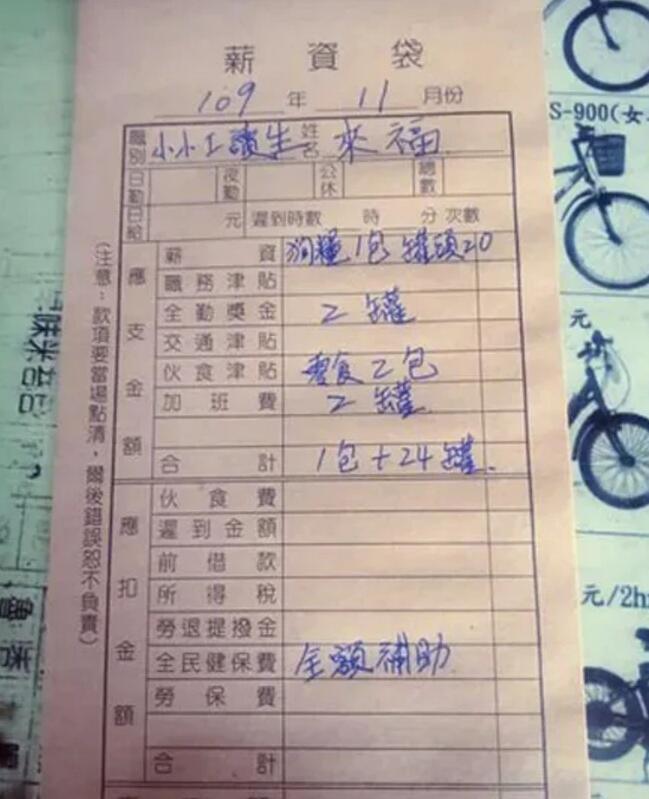 薪資袋
109年11月份
職別 小小工讀生 姓名 來福
日勤 夜勤 公休 總數
日給 元 遲到時數 時 分 次數
應支金額
薪資 狗糧1包 罐頭20
職務津貼
全勤獎金 2罐
交通津貼
伙食津貼 零食2包
加班費 2罐
合計 1包+24罐.
應扣金額
伙食費
遲到金額
前借款
所得稅
勞退提撥金
全民健保費 全額補助
勞保費
合計
(注意：款項要當場點清，爾後錯誤恕不負責)
S-900(女
元
元/2h